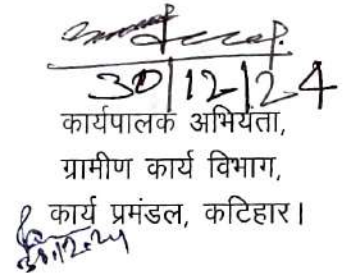 30/12/24
कार्यपालक अभियंता,
ग्रामीण कार्य विभाग,
कार्य प्रमंडल, कटिहार।
30.12.24